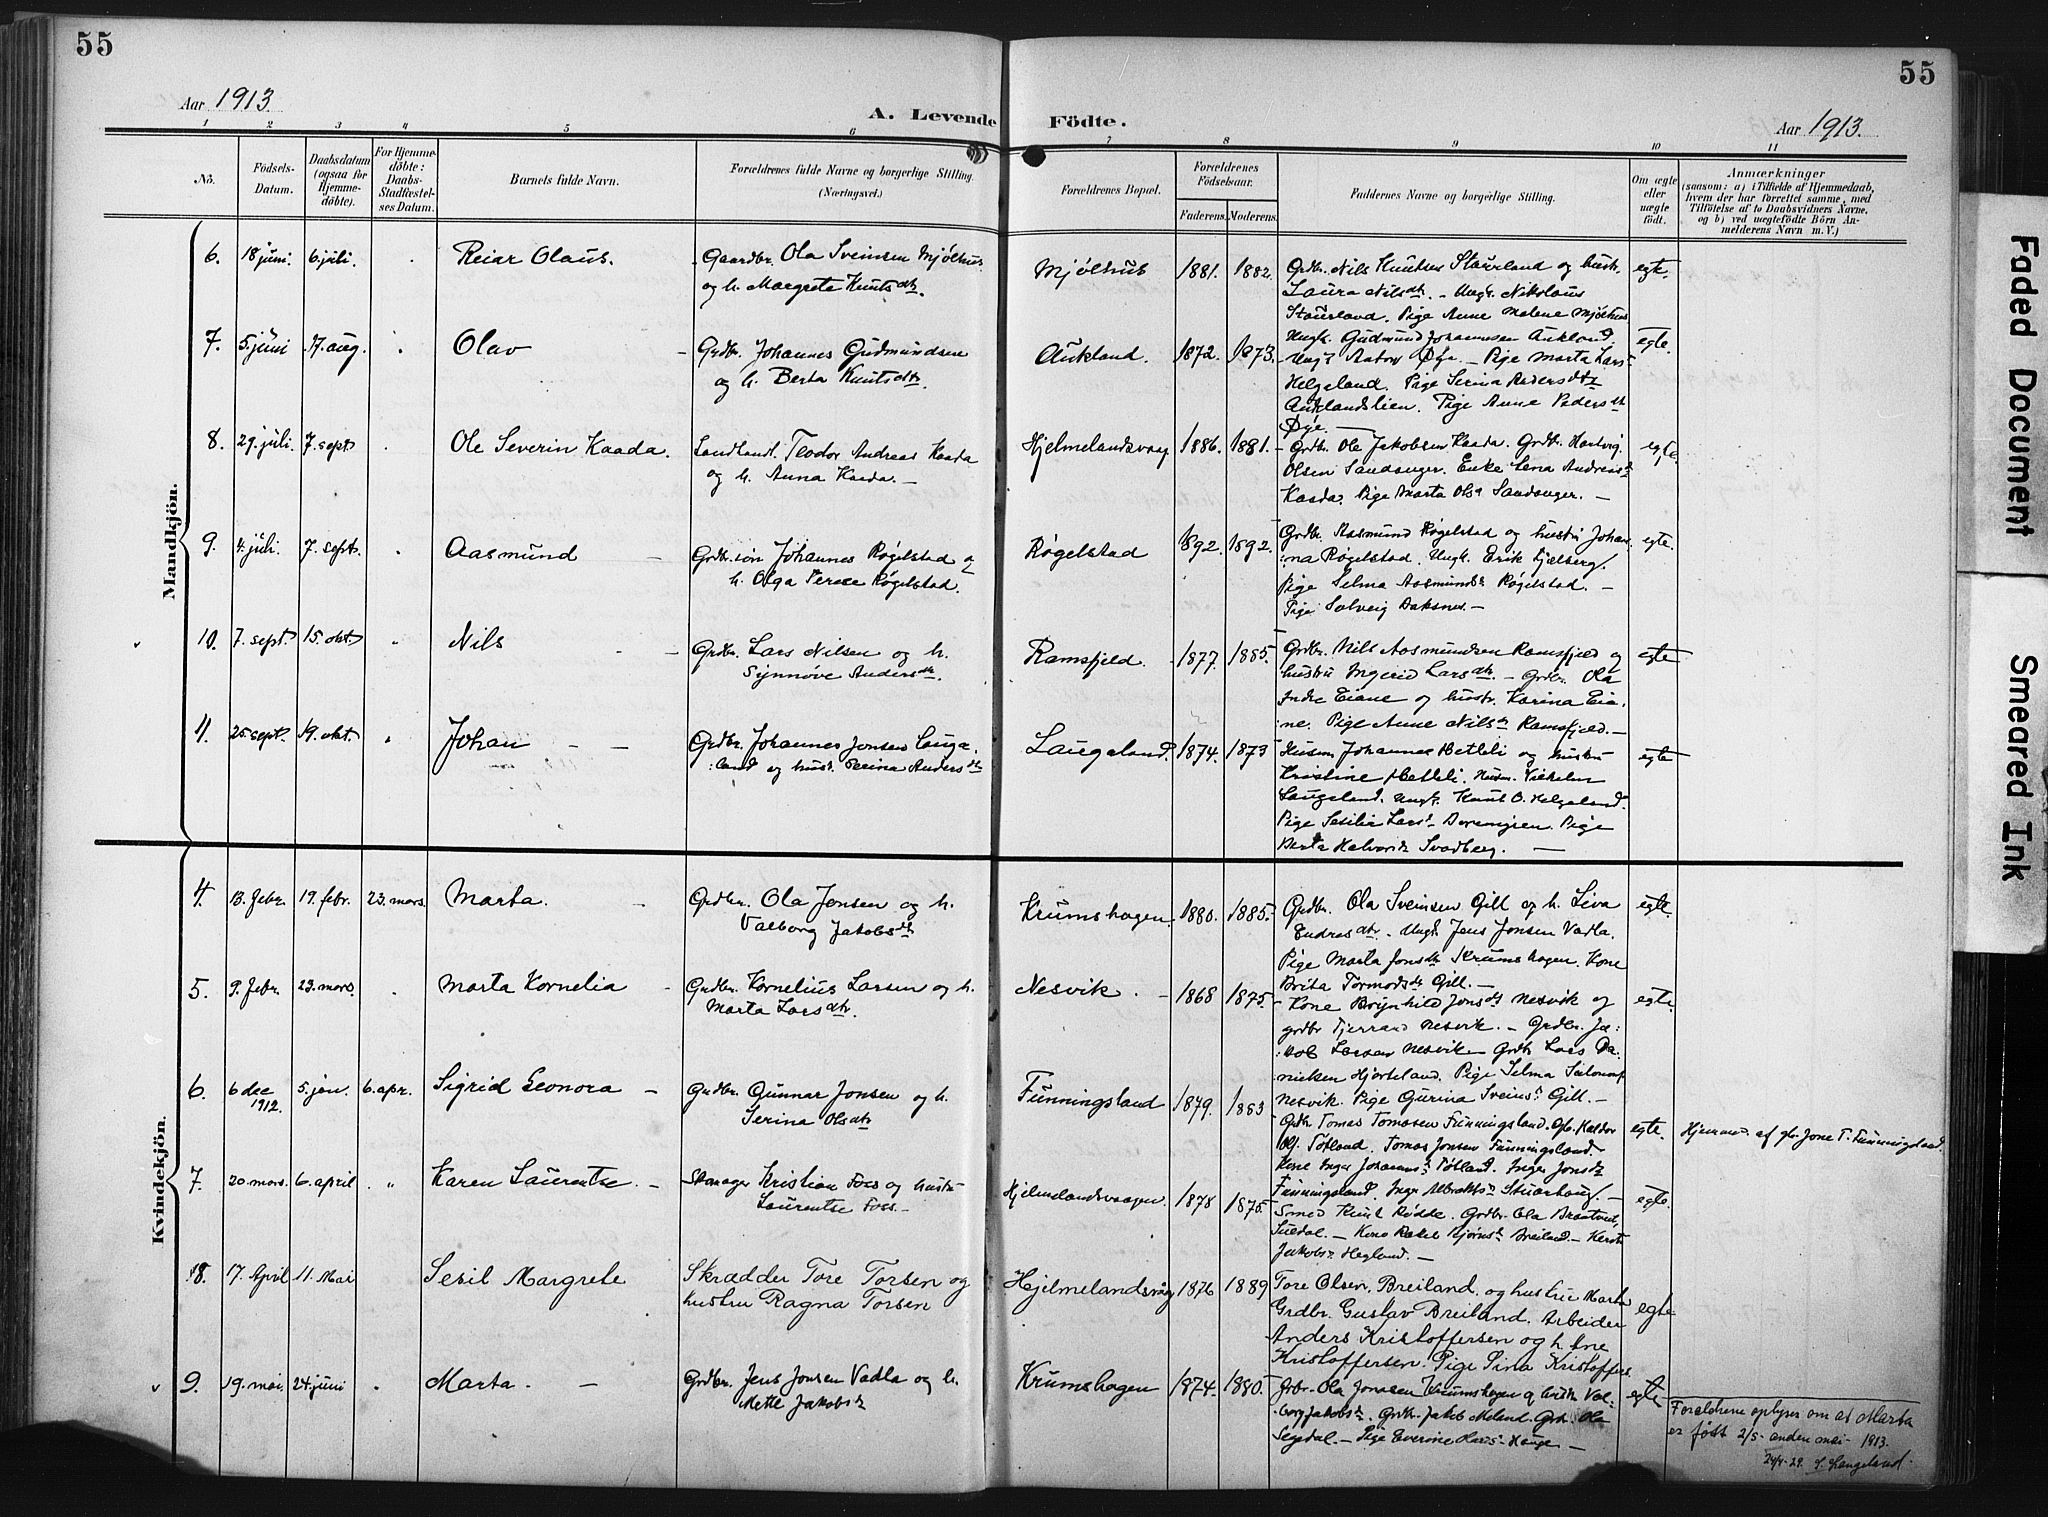 55
55
Aar 1913.
A. Levende Födte.
Aar 1913.
1 2 3 4 5 6 7 8 9 10 11
No.
Födsels-
Datum.
Daabsdatum
(ogsaa for
Hjemme-
döbte).
For Hjemme-
döbte:
Daabs-
Stadfæstel-
ses Datum.
Barnets fulde Navn.
Forældrenes fulde Navne og borgerlige Stilling.
(Næringsvei.)
Forældrenes Bopæl.
Forældrenes
Födselsaar.
Faderens. Moderens.
Faddernes Navne og borgerlige Stilling.
Om ægte
eller
uægte
födt.
Anmærkninger
(saasom: a) i Tilfælde af Hjemmedaab,
hvem der har forrettet samme, med
Tilföielse af to Daabsvidners Navne,
og b) ved uægtefödte Börn An-
melderens Navn m. V.)
Mandkjön.
6. 18 juni. 6 juli. Reiar Olaus. Gaardbr. Ola Sveinsen Mjølhus
og h. Margrete Knutsdtr.
Mjølhus 1881. 1882. Grdbr. Nils Knutsen Staurland og hust.
Laura Nilsdtr. - Ungk. Nikolaus
Staurland. Pige Anne Malene Mjølhus
egte.
7. 5 juni 17. aug. Olav - Grdbr. Johannes Gudmundsen
og h. Berta Knutsdtr.
Aukland. 1872. 1873. Ungk. Gudmund Johannesen Aukland,
Ungk. Øye - Pige Marta Lars-
Helgeland. Pige Serina Pedersdtr
Auklandslien. Pige Anne Pedersdtr
Øye. -
egte.
8. 29. juli. 7. sept. Ole Severin Kaada. Landhandl. Teodor Andreas Kaada
og h. Anna Kaada. -
Hjelmelandsvaag 1886. 1881. - Grdbr. Ole Jakobsen Kaada. Grdbr. Hartvig
Olsen Sandanger. Enke Lena Andreas
Kaada. Pige Marta Ols Sandanger. -
egte.
9. 4. juli. 7. sept. Aasmund - Grdbr.søn Johannes Røgelstad og
h. Olga Terese Røgelstad.
Røgelstad 1892. 1892. Grdbr. Aasmund Røgelstad og hustru Johan-
na Røgelstad. Ungk. Erik Fjelberg.
Pige Selma Aasmunds Røgelstad. -
Pige Solveig -
egte.
10. 7. sept. 15. okt. Nils - - Grdbr. Lars Nilsen og h.
Synnøve Andersdtr.
Ramsfjeld. 1877. 1885. Grdbr. Nils Aasmundsen Ramsfjeld og
hustru Ingerid Larsdtr. - Grdbr. Ola
Indre Eiane og hustr. Karina Eia-
ne. Pige Anne Nils Ramsfjeld. -
egte
11. 25. sept. 19. okt. Johan - - Grdbr. Johannes Jonsen Lauga-
land og hust. Serina Andersdtr
Laugaland. 1874. 1873 Husm. Johannes Hetleli og hustru
Kristine Hetleli. Husm. Vilhelm
Laugaland. Ungk. Knut O. Helgeland.
Pige Sesilia Lars Pige
Berta Halvors Svadberg. -
egte
Kvindekjön.
4. 13. febr. 19. febr. 23. mars. Marta. - Grdbr. Ola Jonsen og h.
Valborg Jakobsdtr
Krumshagen. 1880. 1885. Grdbr. Ola Sveinsen Gill og h. Siva
Endresdtr. - Ungk. Jens Jonsen Vadla.
Pige Marta Jonsdtr Krumshagen. Kone
Brita Tormodsdtr Gill. -
egte.
5. 9. febr. 23. mars. Marta Kornelia - Grdbr. Kornelius Larsen og h.
Marta Larsdtr.
Nesvik. - 1868 1875. - Kone Brynhild Jonsdtr Nesvik og
grdbr Tjerrand Nesvik. - Grdbr. Ja-
kob Larsen Nesvik - Grdbr Lars Da-
nielsen Hjorteland. Pige Selma
Nesvik. Pige Gurina Sveins Gill. -
egte.
6. 6 dec 1912. 5. jan. 6. apr. Sigrid Leonora - Grdbr. Gunnar Jonsen og h.
Serina Olsdtr
Funningsland 1879. 1883 Grdbr Tomas Tomasen Funningsland. Haldor
Tøtland. Tomas Jonsen Funningsland. -
Kone Inger Johannes Tøtland. Inger Jonsdtr
Funningsland. Inger Stuarhaug. -
egte. Hjemmed. af gbr. Jone T. Funningsland.
7. 20. mars. 6. april Karen Laurentse. - Kristian Foss og hustru
Laurentse Foss. -
Hjelmelandsvaagen. 1878 1875. Smed Knut Rødde. Grdbr. Ola Braatveit,
Suldal. - Kone Rakel Bjørns Breiland. -
Jakobs Hegland. -
egte.
8. 17. April 11. Mai Sesil Margrete Skrædder Tore Torsen og
hustru Ragna Torsen
Hjelmelandsvåg 1876 1889 Tore Olsen Breiland og hustru Marta
Grdbr. Gustav Breiland. Arbeider
Anders Kristoffersen og h. Ane
Kristoffersen. Pige Sina Kristoffers.
egte
9. 19. mai. 24. juni Marta. - Grdbr. Jens Jonsen Vadla og h.
Mette Jakobsdtr
Krumshagen 1874. 1880. Grbr. Ola Jonasen Krumshagen og hustr. Val-
borg Jakobs. Grdbr. Jakob Meland. Grdr. Ola
Segadal. - Pige Everine Hauge -
egte
Forældrene oplyser om at Marta
er født 2/5 - anden mai - 1913.
24/4-29. S. Langeland.
Faded Document
Smeared Ink